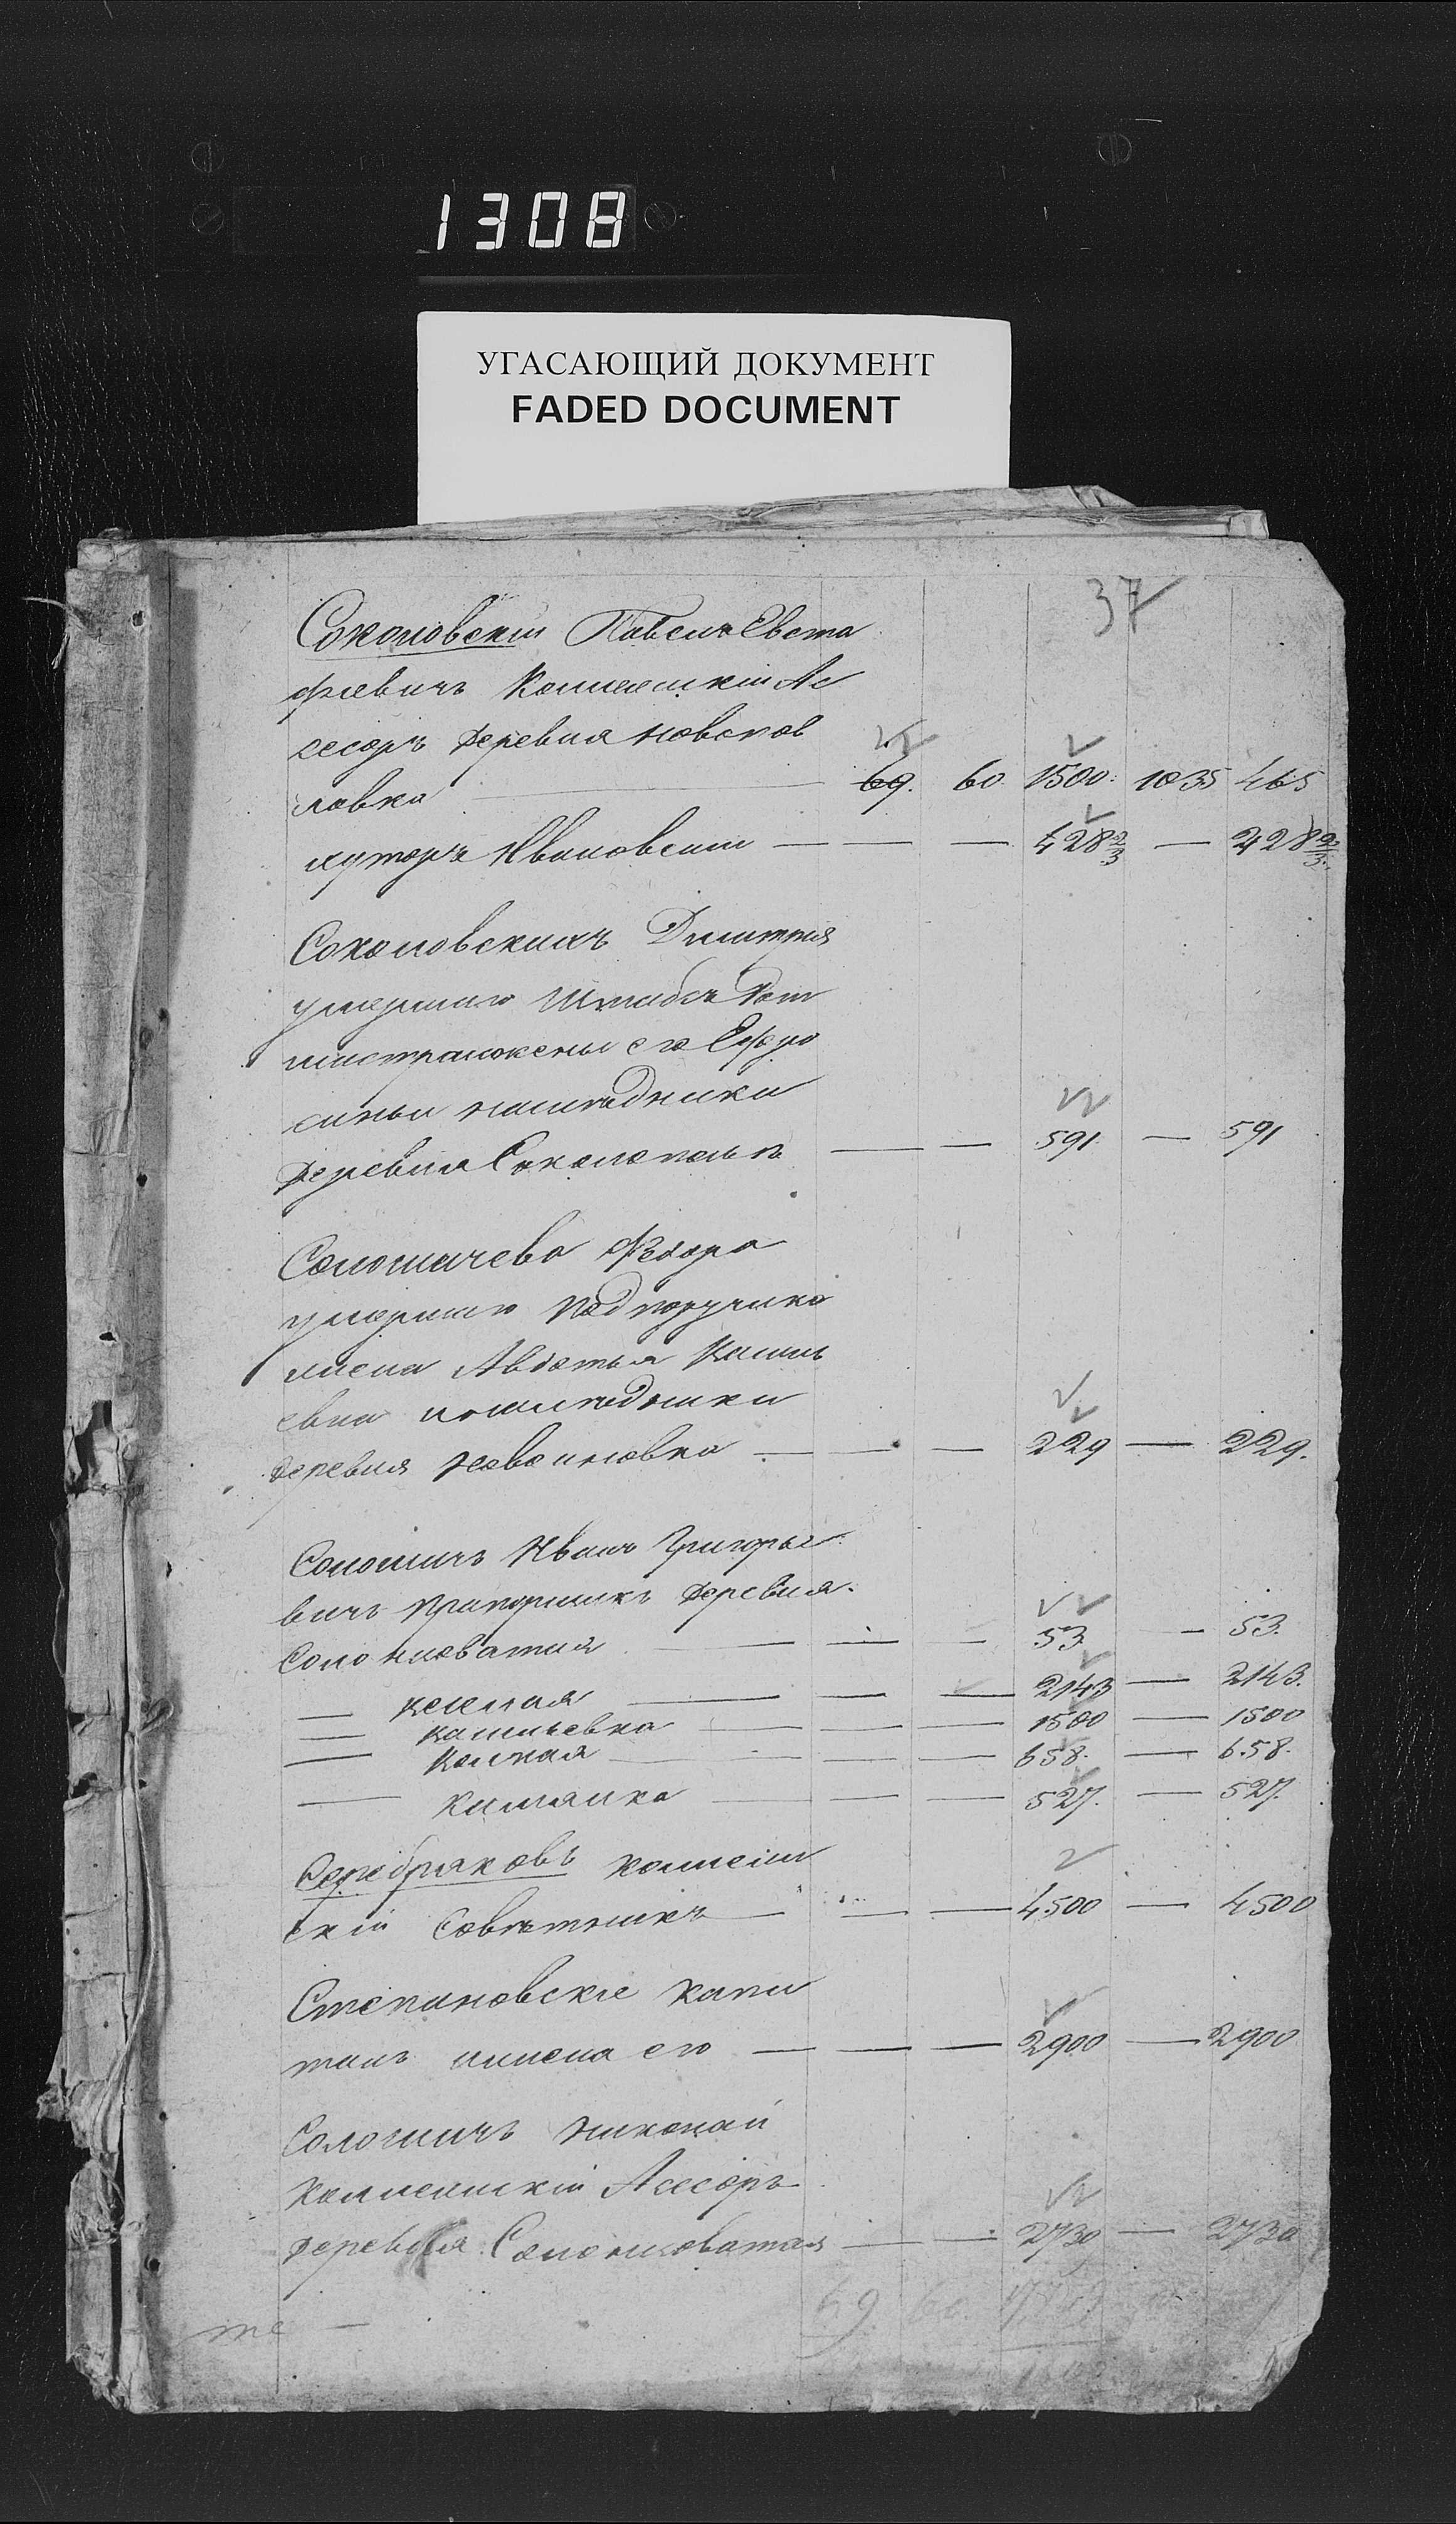 1308
УГАСАЮЩИЙ ДОКУМЕНТ
FADED DOCUMENT
37
Соколовскій Павелъ Евста
фіевичъ Коллежскій Ас
сесоръ деревня
ловка — 69. 60 1500. 1035 465
хуторъ Ивановскій — — — 428 2/3 — 428 2/3
Соколовскихъ Дмитрія
умершаго Штабсъ Рот
мистра жены его Ефро
синьи наследники
деревня Соколополь — — 591 — 591
Соломачева Федора
умершаго Подпоручика
жена Авдотья
евна наследники
деревня — — — 229 — 229.
Соломичъ Иванъ Григорье
вичъ Прапорщикъ деревня
Солоноватая — — — 53 — 53.
— — — — 2143 — 2143.
— — — — 1500 — 1500
— — — — 658. — 658.
— — — — 527. — 527.
Серебряковъ коллеж
скій Советникъ — — — 4500 — 4500
Степановскіе капи
танъ жена его — — — 2900 — 2900
Соломичъ Николай
Коллежскій Асесоръ
деревня Солоноватая — — 2730 — 2730
69